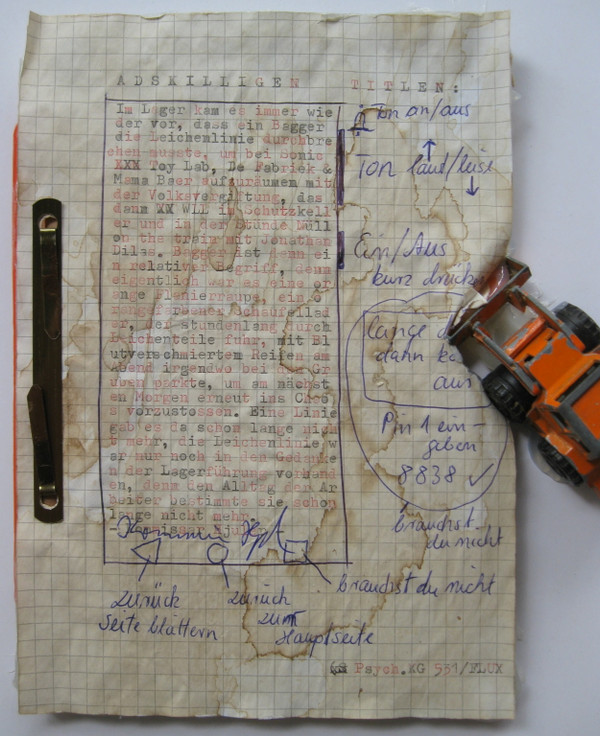 ADSKILLIGEN TITLEN:
Im Lager kam es immer wie
der vor, dass ein Bagger
die Leichenlinie durchbre
chen musste, um bei Sonic
XXX Toy Lab, De Fabriek &
Mama Baer aufzuräumen mit
der Volksvergiftung, das
dann XX WLL im Schutzkell
er und in der Stunde Null
on the train mit Jonathan
Dilas. Bagger ist denn ei
n relativer Begriff, denn
eigentlich war es eine or
ange Planierraupe, ein o
rangefarbener Schaufellad
er, der stundenlang durch
Leichenteile fuhr, mit Bl
utverschmiertem Reifen am
Abend irgendwo bei der Gr
uben parkte, um am nächst
en Morgen erneut ins Chao
s vorzustossen. Eine Linie
gab es da schon lange nich
t mehr, die Leichenlinie w
ar nur noch in den Gedanke
n der Lagerführung vorhand
en, denn den Alltag der Ar
beiter bestimmte sie schon
lange nicht mehr.
Ton an/aus
Ton laut/leise
Ein/Aus
kurz drück
lange d
dann ka
aus
Pin 1 ein-
geben
8838 ✓
brauchst
du nicht
brauchst du nicht
zurück
Seite blättern
zurück
zum
Hauptseite
Psych.KG 531/FLUX